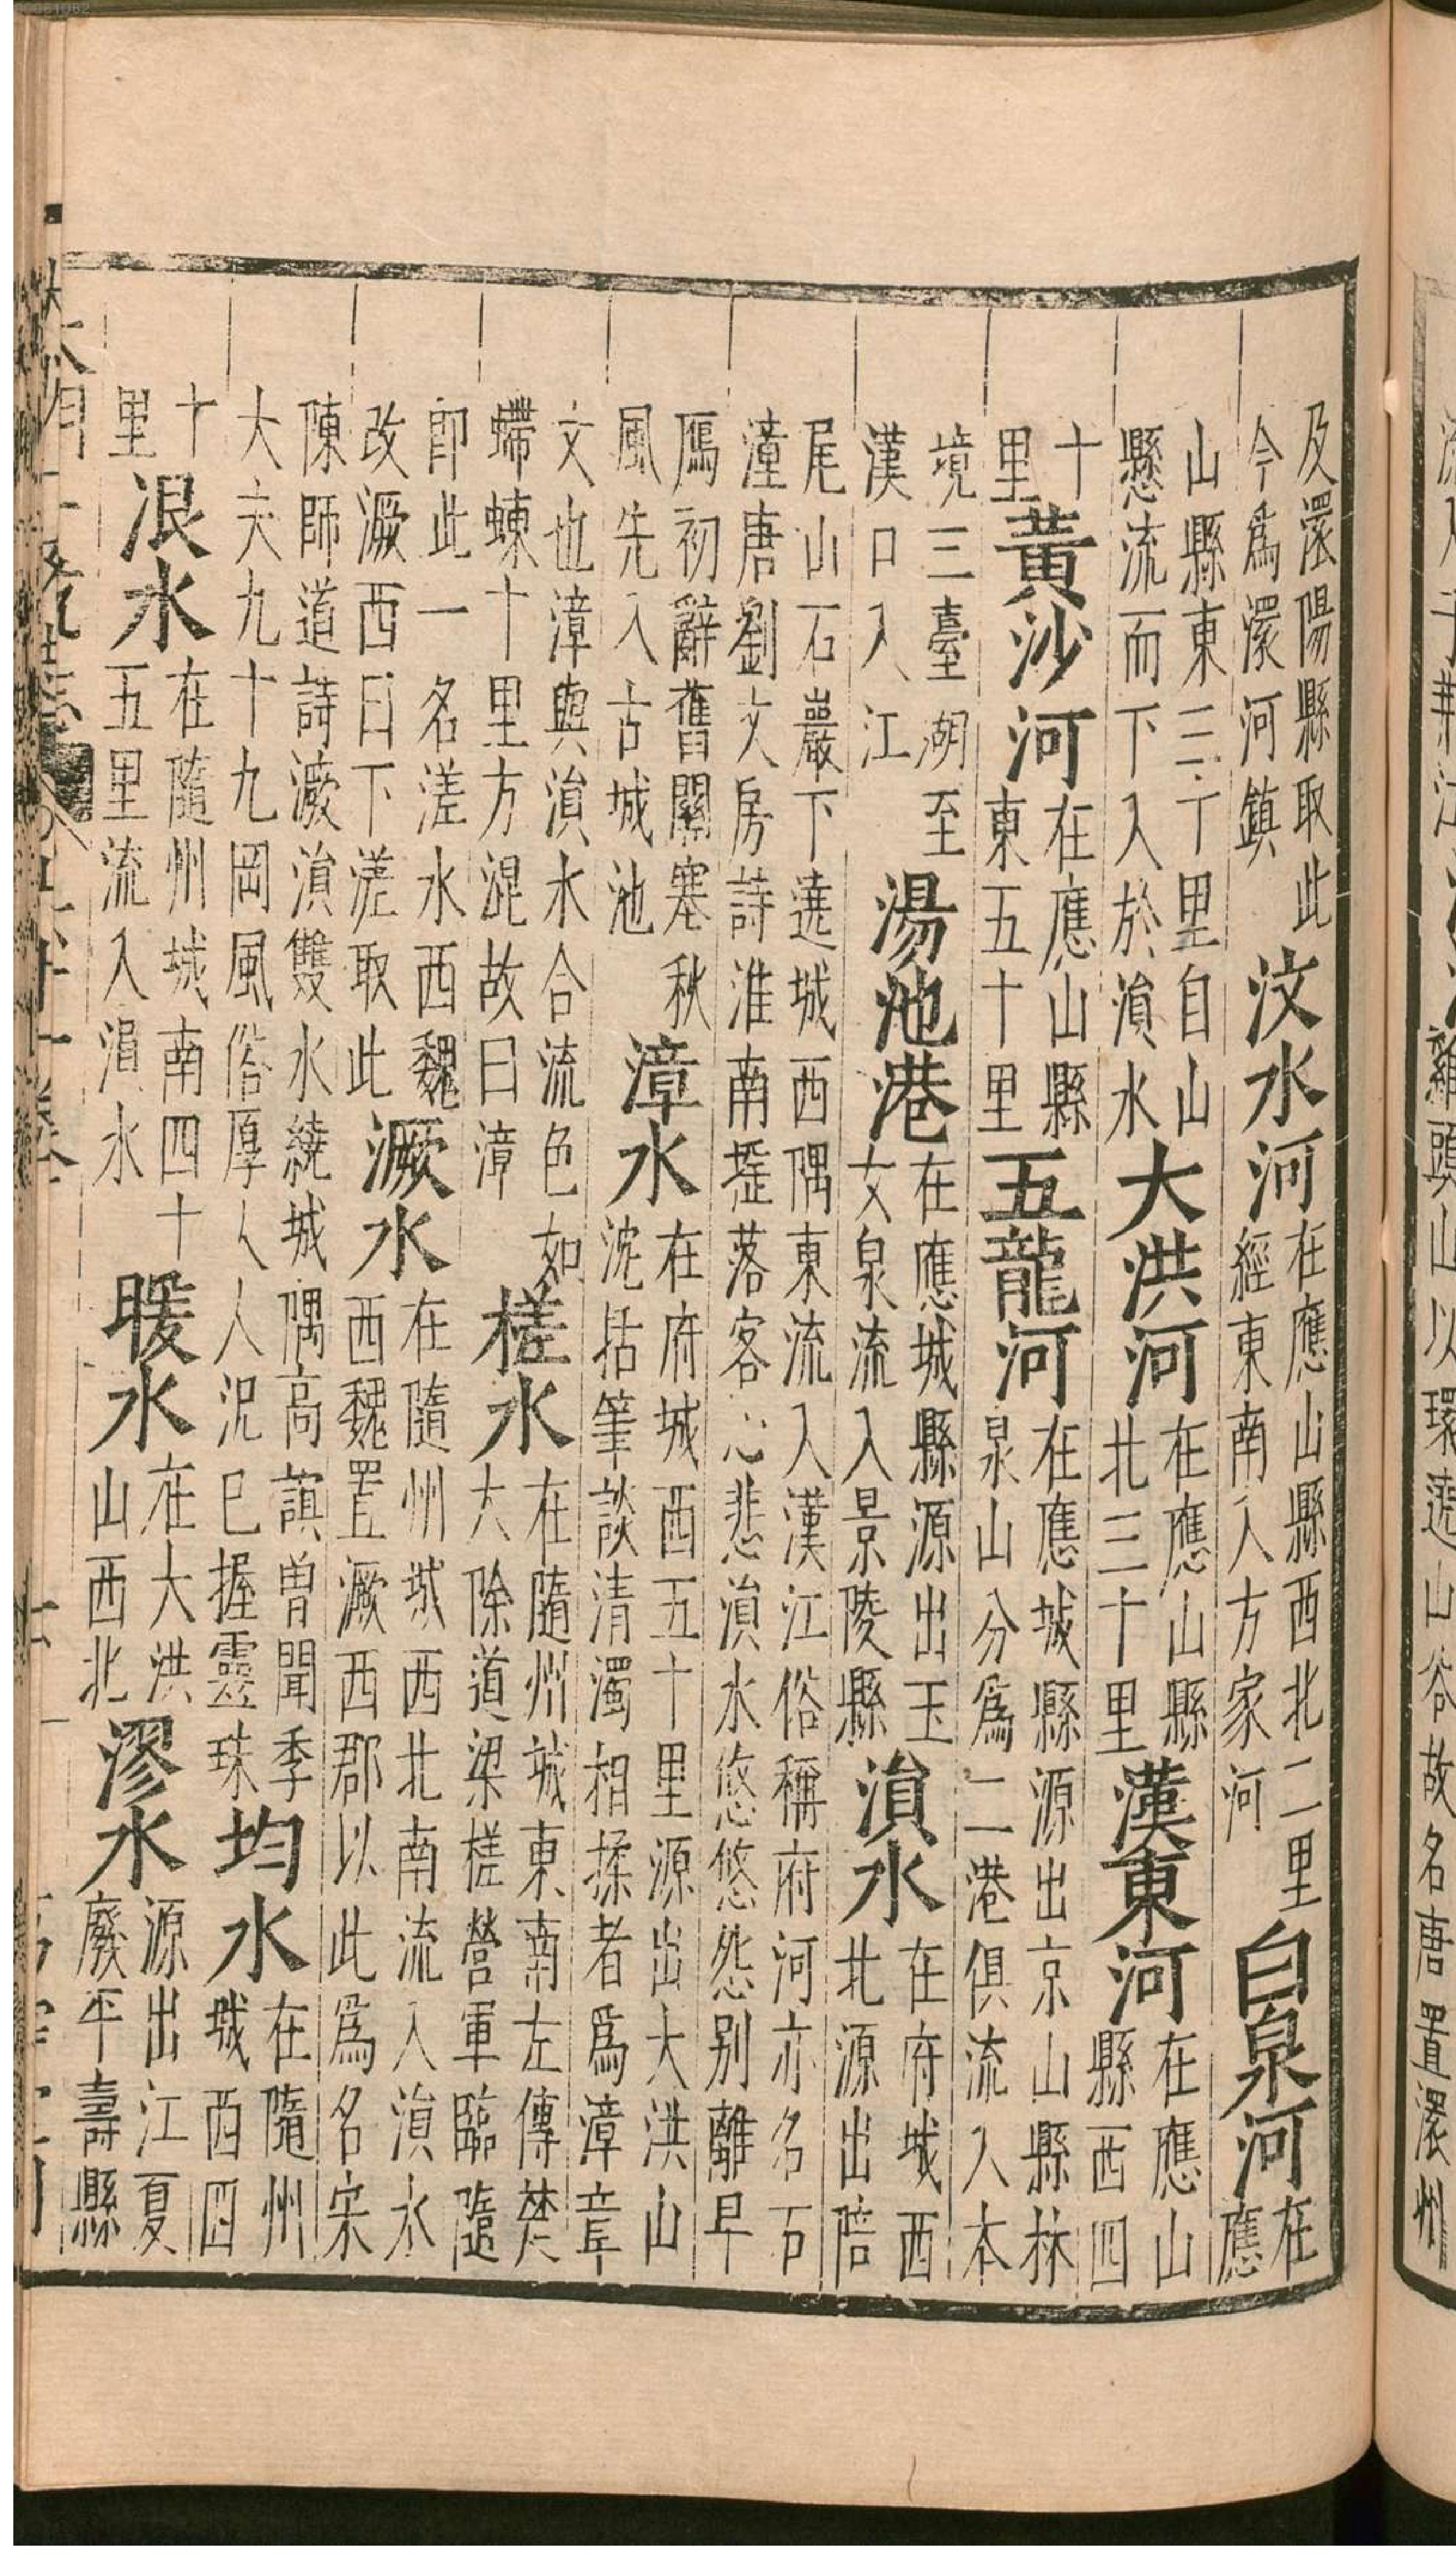 及澴陽縣取此
今爲澴河鎮
汶水河
在應山縣西北二里
經東南入方家河
白泉河
在
應
山縣東三丁里自山
懸流而下入於溳水
大洪河
在應山縣
北三十里
漢東河
在應山
縣西四
十
里
黃沙河
在應山縣
東五十里
五龍河
在應城縣源出京山縣林
泉山分爲二港俱流入本
境三臺湖至
漢口入江
湯池港
在應城縣源出玉
女泉流入景陵縣
溳水
在府城西
北源出陪
尾山石巖下遶城西隅東流入漢江俗稱府河亦名石
潼唐劉文房詩淮南搖落客心悲溳水悠悠怨别離早
鴈初辭舊關塞秋
風先入古城池
漳水
在府城西五十里源出大洪山
沈括筆談清濁相揉者爲漳章
文也漳與溳水合流色如
螮蝀十里方混故曰漳
槎水
在隨州城東南左傳楚
大除道梁槎營軍臨隨
即此一名溠水西魏
改㵐西曰下溠取此
㵐水
在隨州城西北南流入溳水
西魏置㵐西郡以此爲名宋
陳師道詩㵐溳雙水繞城隅高曾聞季
大夫九十九岡風俗厚人人況已握靈珠
均水
在隨州
城西四
十
里
泿水
在隨州城南四十
五里流入溳水
暖水
在大洪
山西北
漻水
源出江夏
廢平壽縣